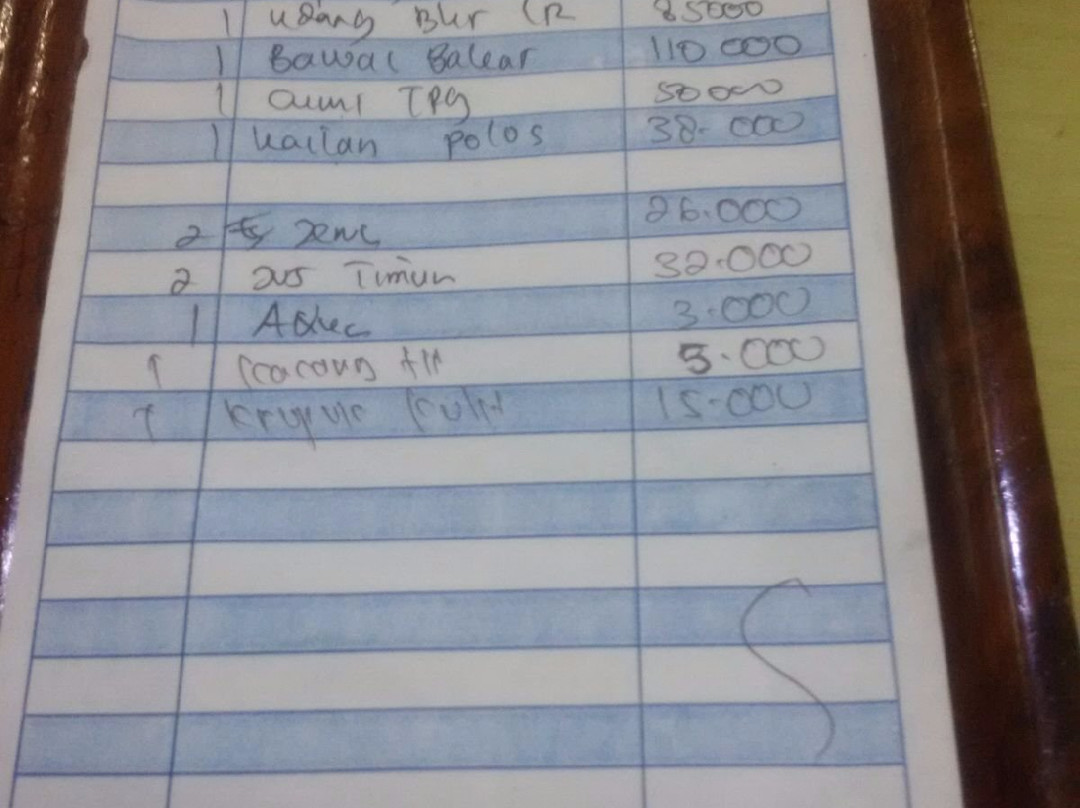 1 udang Bkr 85000
1 Bawal Bakar 110 000
1 Cumi TPG 50000
1 kailan polos 38.000
2 26.000
2 Jus Timun 32.000
1 Aqua 3.000
1 5.000
1 Krupuk kulit 15.000